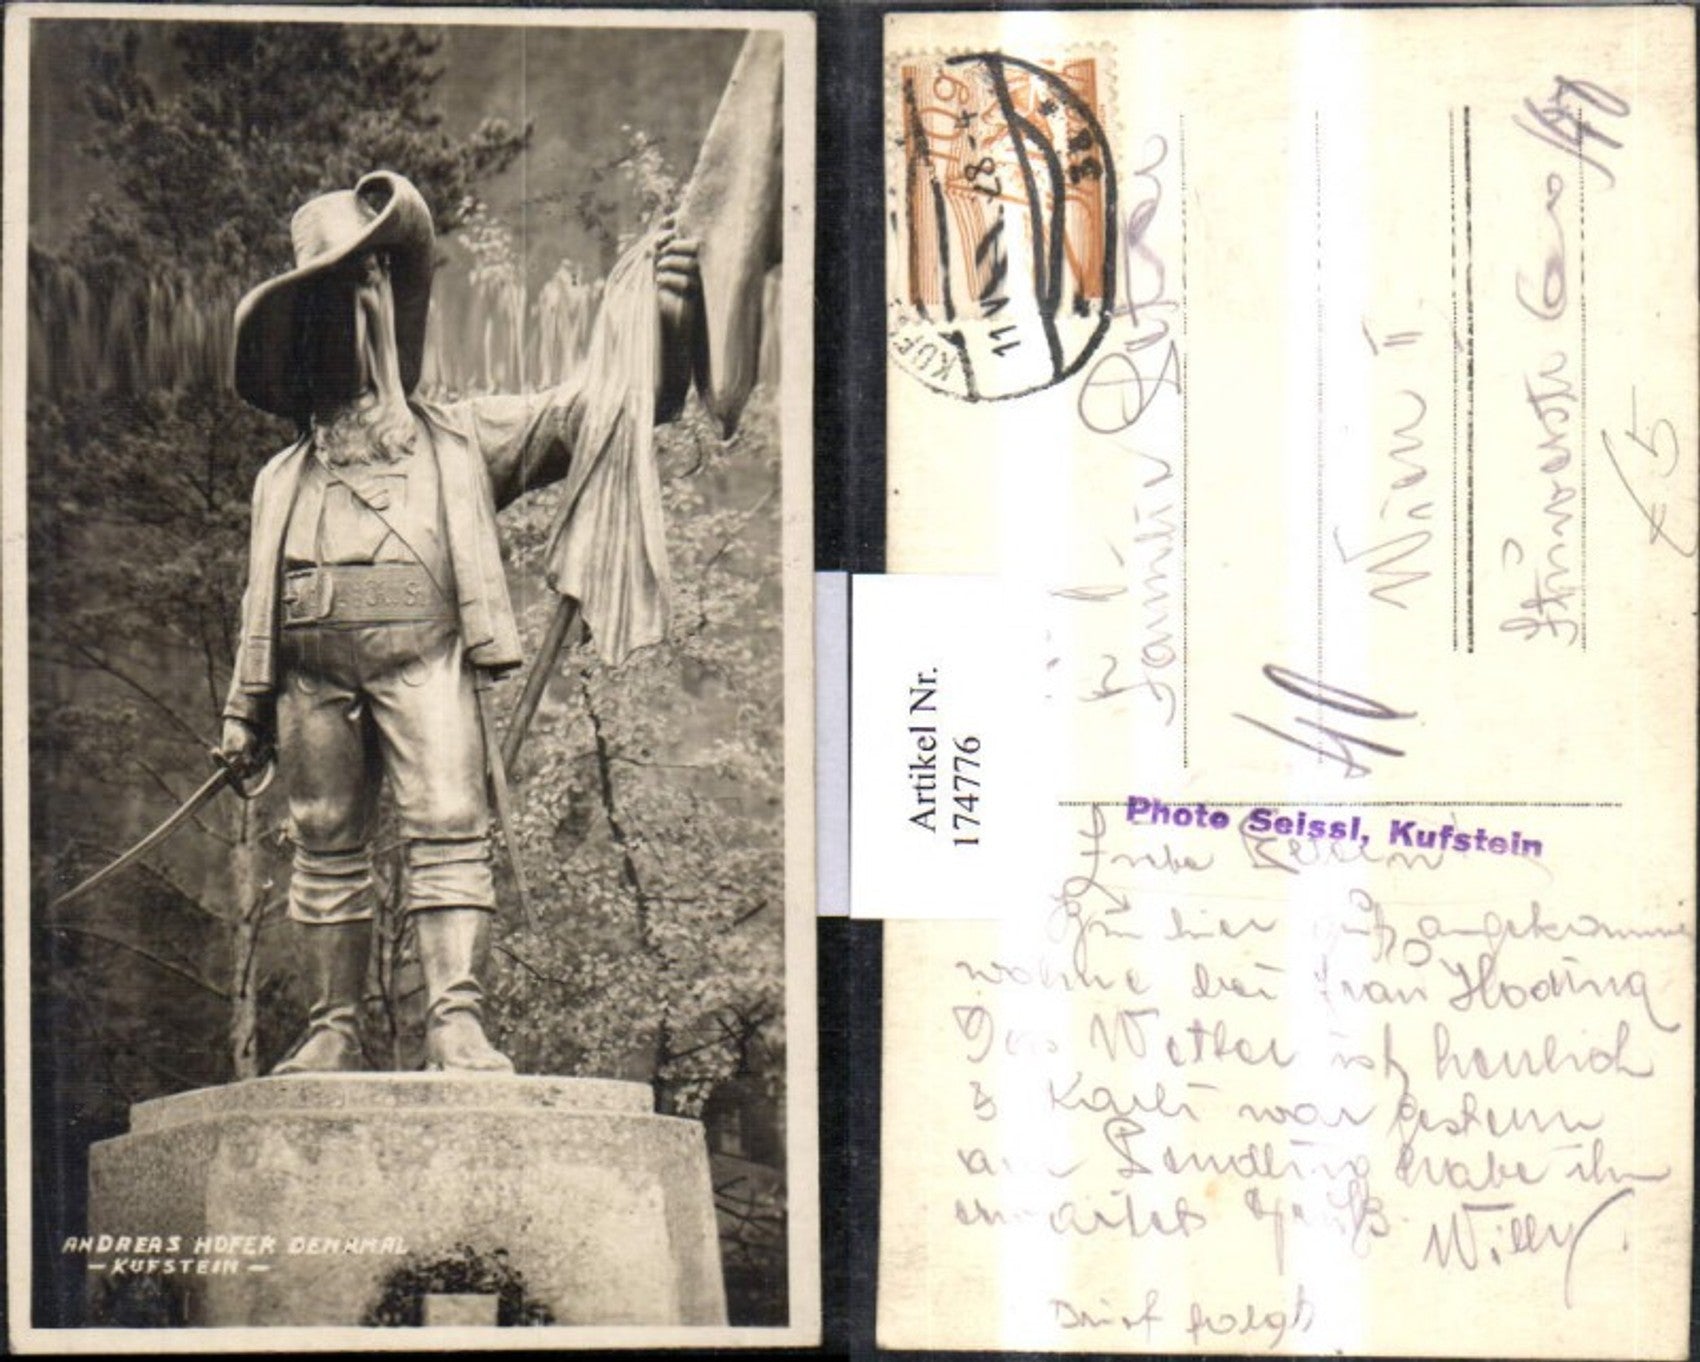 ANDREAS HOFER DENKMAL
- KUFSTEIN -
Artikel Nr.
174776
60 g
11. V. 28 - 4
KUF
Familie
Wien II
5
Photo Seissl, Kufstein
Liebe
Bin hier gut angekommen
wohne bei Frau
Das Wetter ist herrlich
Karli war gestern
am habe ihn
erwartet Gruß
Willy
Brief folgt